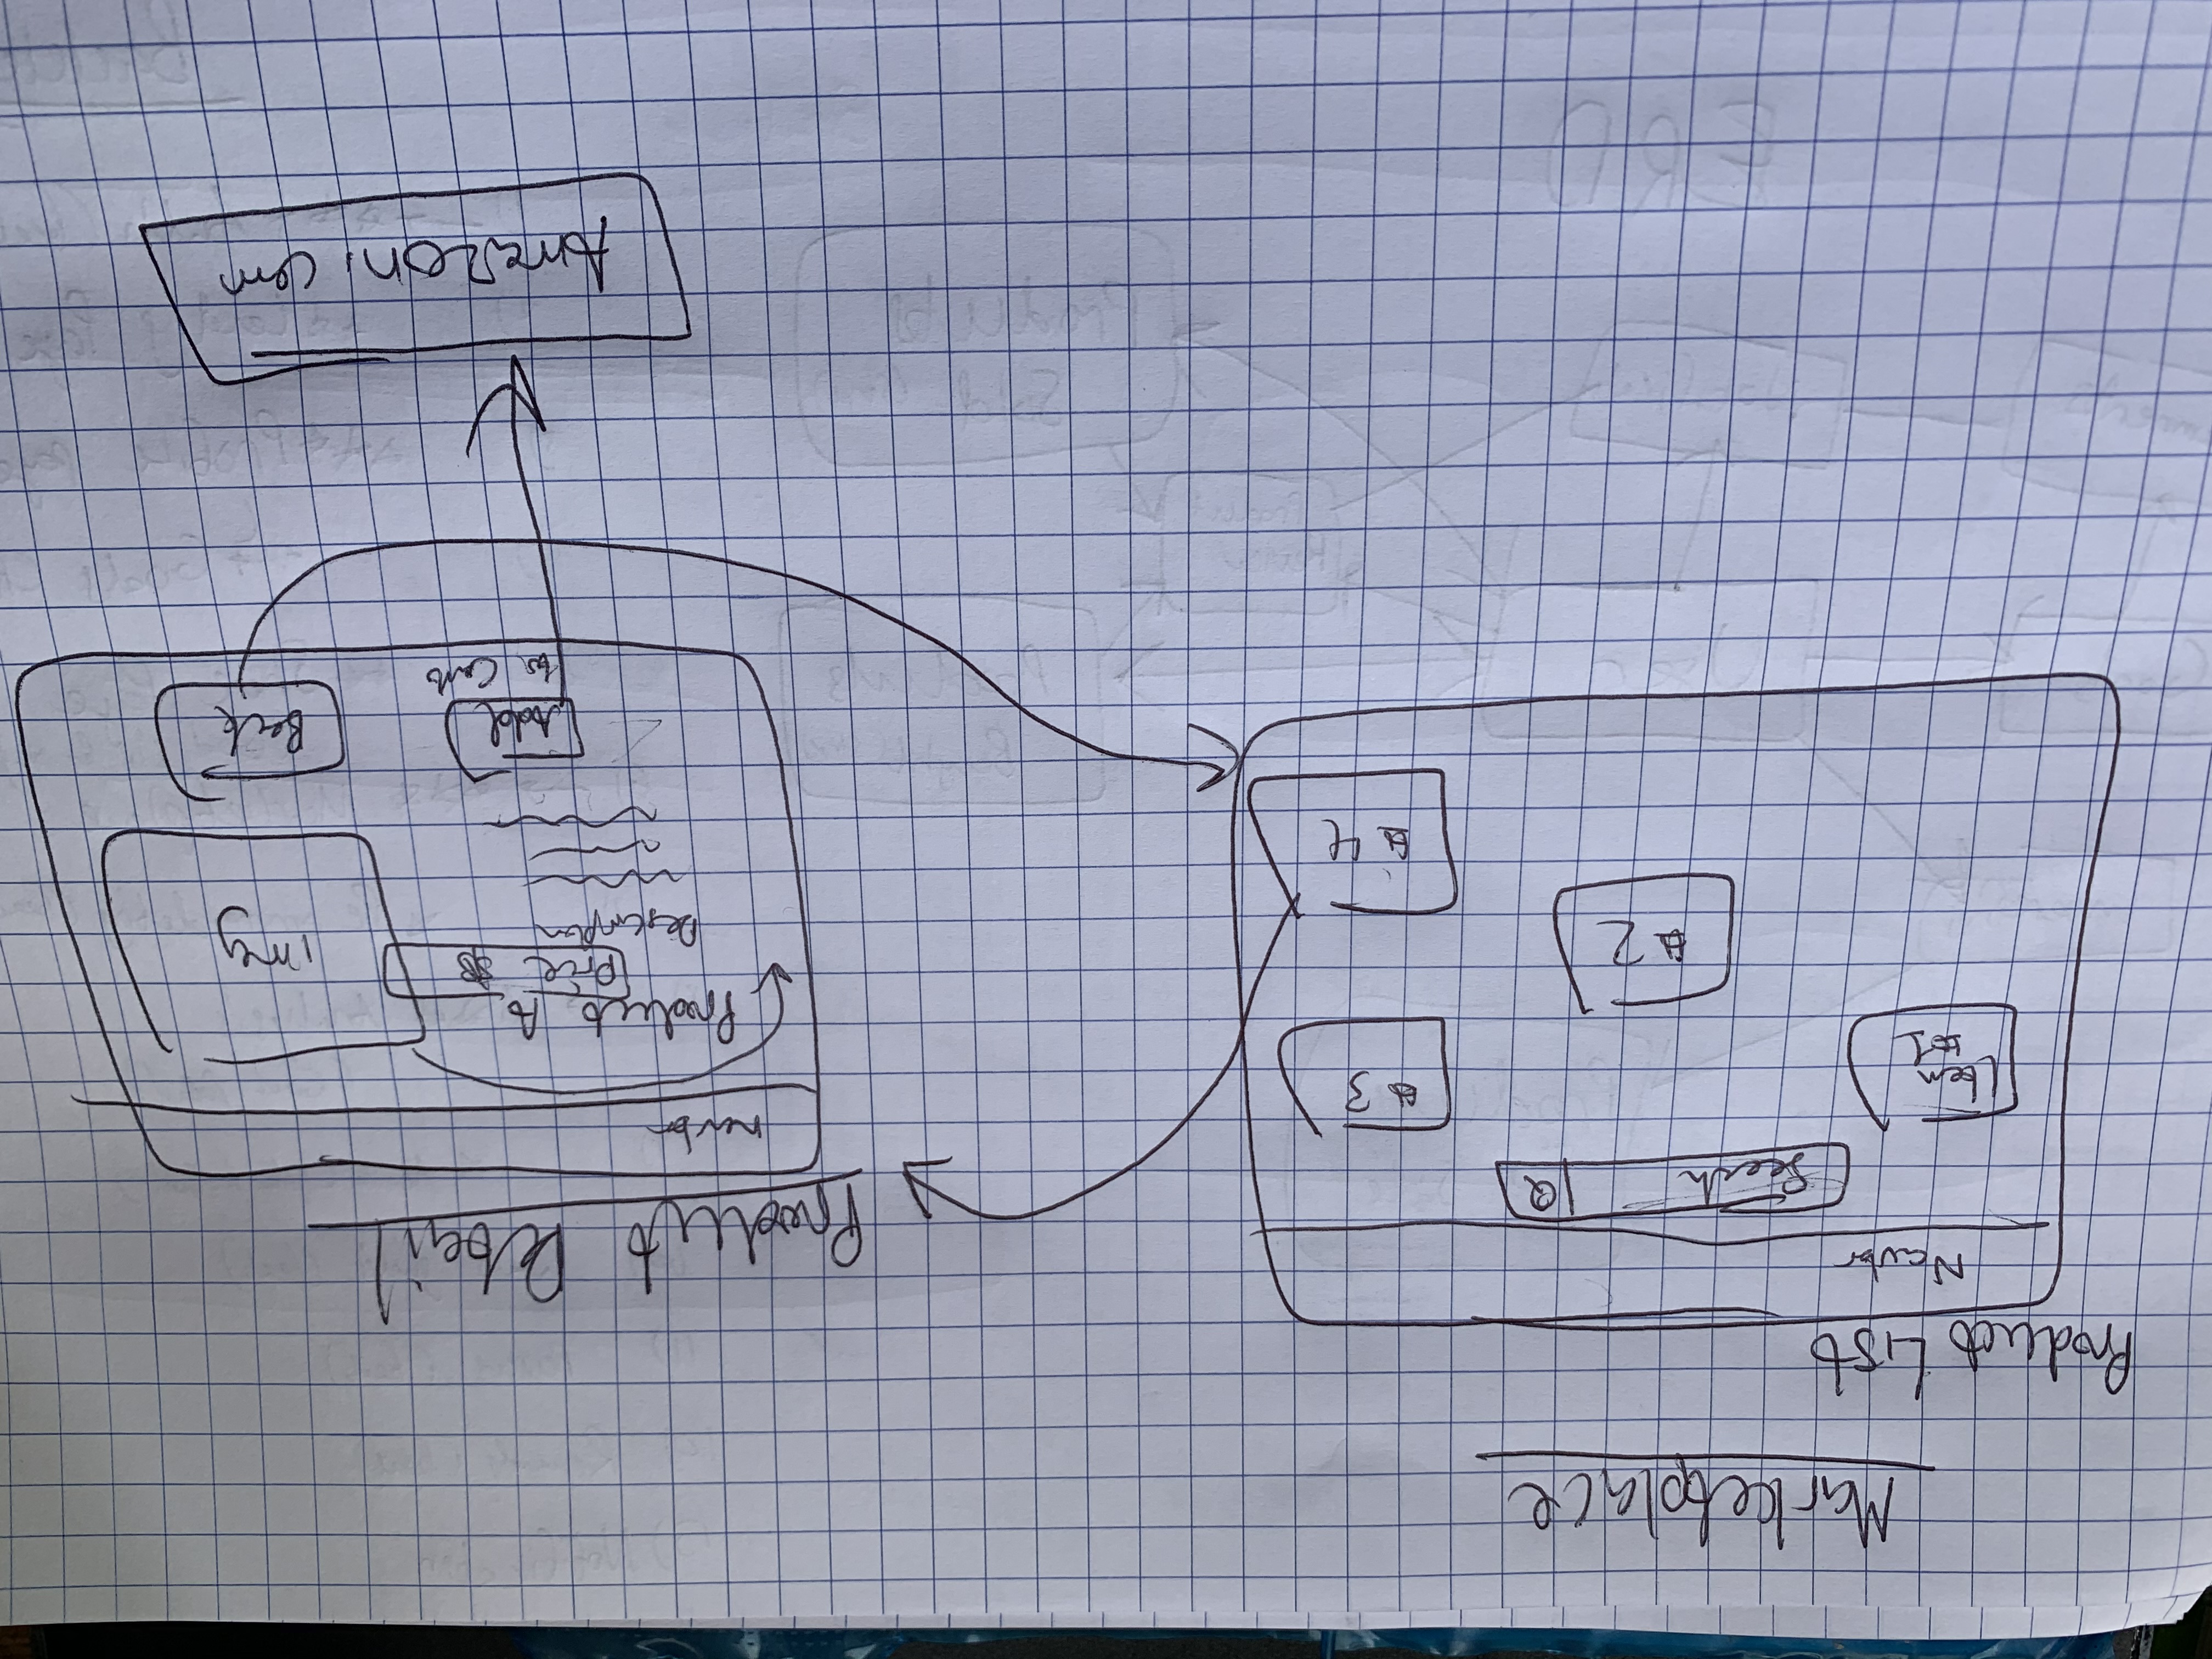 Marketplace
Product List
Navbr
Search
Q
Item
#1
#2
#3
#4
Product Detail
navbr
Product A
Price $$
Description
img
Add
to Cart
Back
Amazon.com
ERD